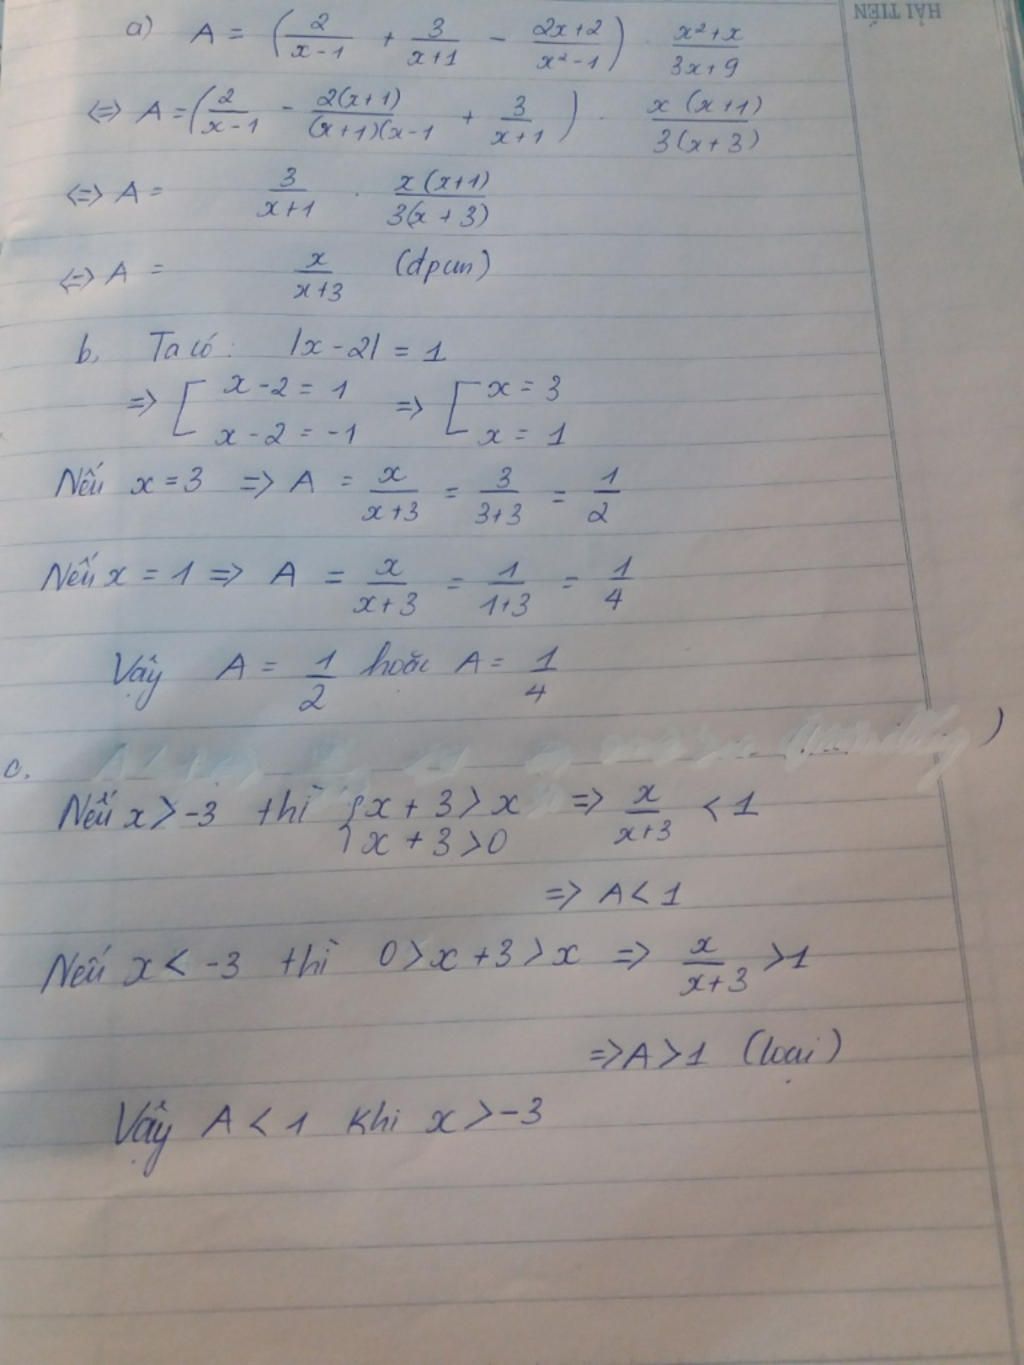 HẢI TIẾN
a) A = (2/(x-1) + 3/(x+1) - (2x+2)/(x²-1)) . (x²+x)/(3x+9)
<=> A = (2/(x-1) - 2(x+1)/((x+1)(x-1) + 3/(x+1)) . x(x+1)/(3(x+3))
<=> A = 3/(x+1) . x(x+1)/(3(x+3))
<=> A = x/(x+3) (đpcm)
b, Ta có: |x-2| = 1
=> [ x-2 = 1 => [ x = 3
x-2 = -1 x = 1
Nếu x = 3 => A = x/(x+3) = 3/(3+3) = 1/2
Nếu x = 1 => A = x/(x+3) = 1/(1+3) = 1/4
Vậy A = 1/2 hoặc A = 1/4
c.
)
Nếu x > -3 thì { x + 3 > x => x/(x+3) < 1
x + 3 > 0
=> A < 1
Nếu x < -3 thì 0 > x + 3 > x => x/(x+3) > 1
=> A > 1 (loại)
Vậy A < 1 khi x > -3